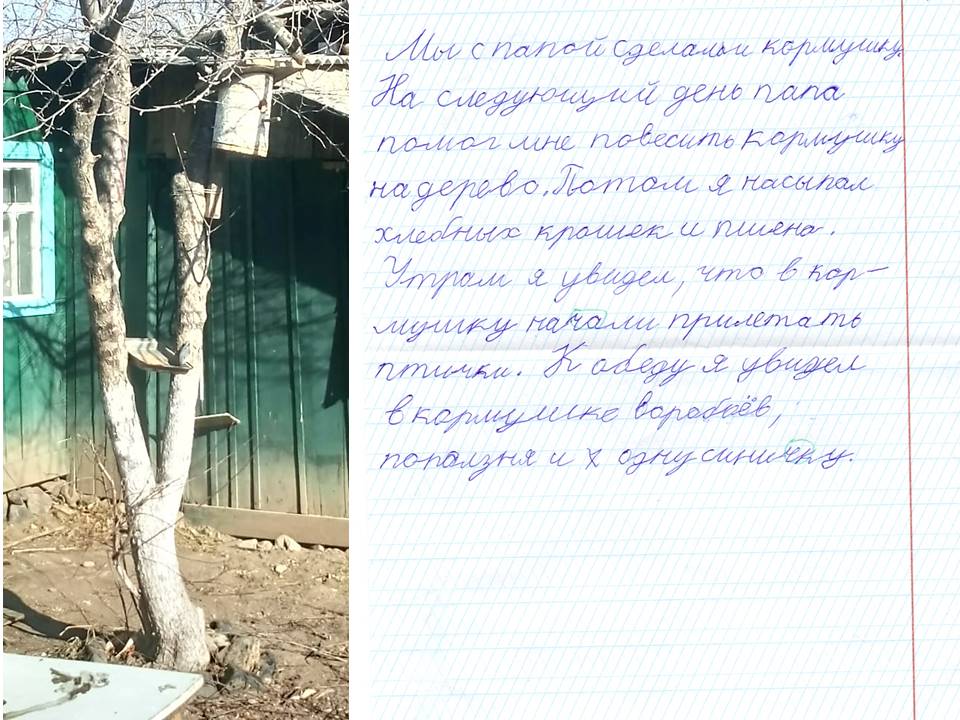 Мы с папой сделали кормушку.
На следующий день папа
помог мне повесить кормушку
на дерево. Потом я насыпал
хлебных крошек и пшена.
Утром я увидел, что в кор-
мушку начали прилетать
птички. К обеду я увидел
в кормушке воробьёв,
поползня и х одну синичку.